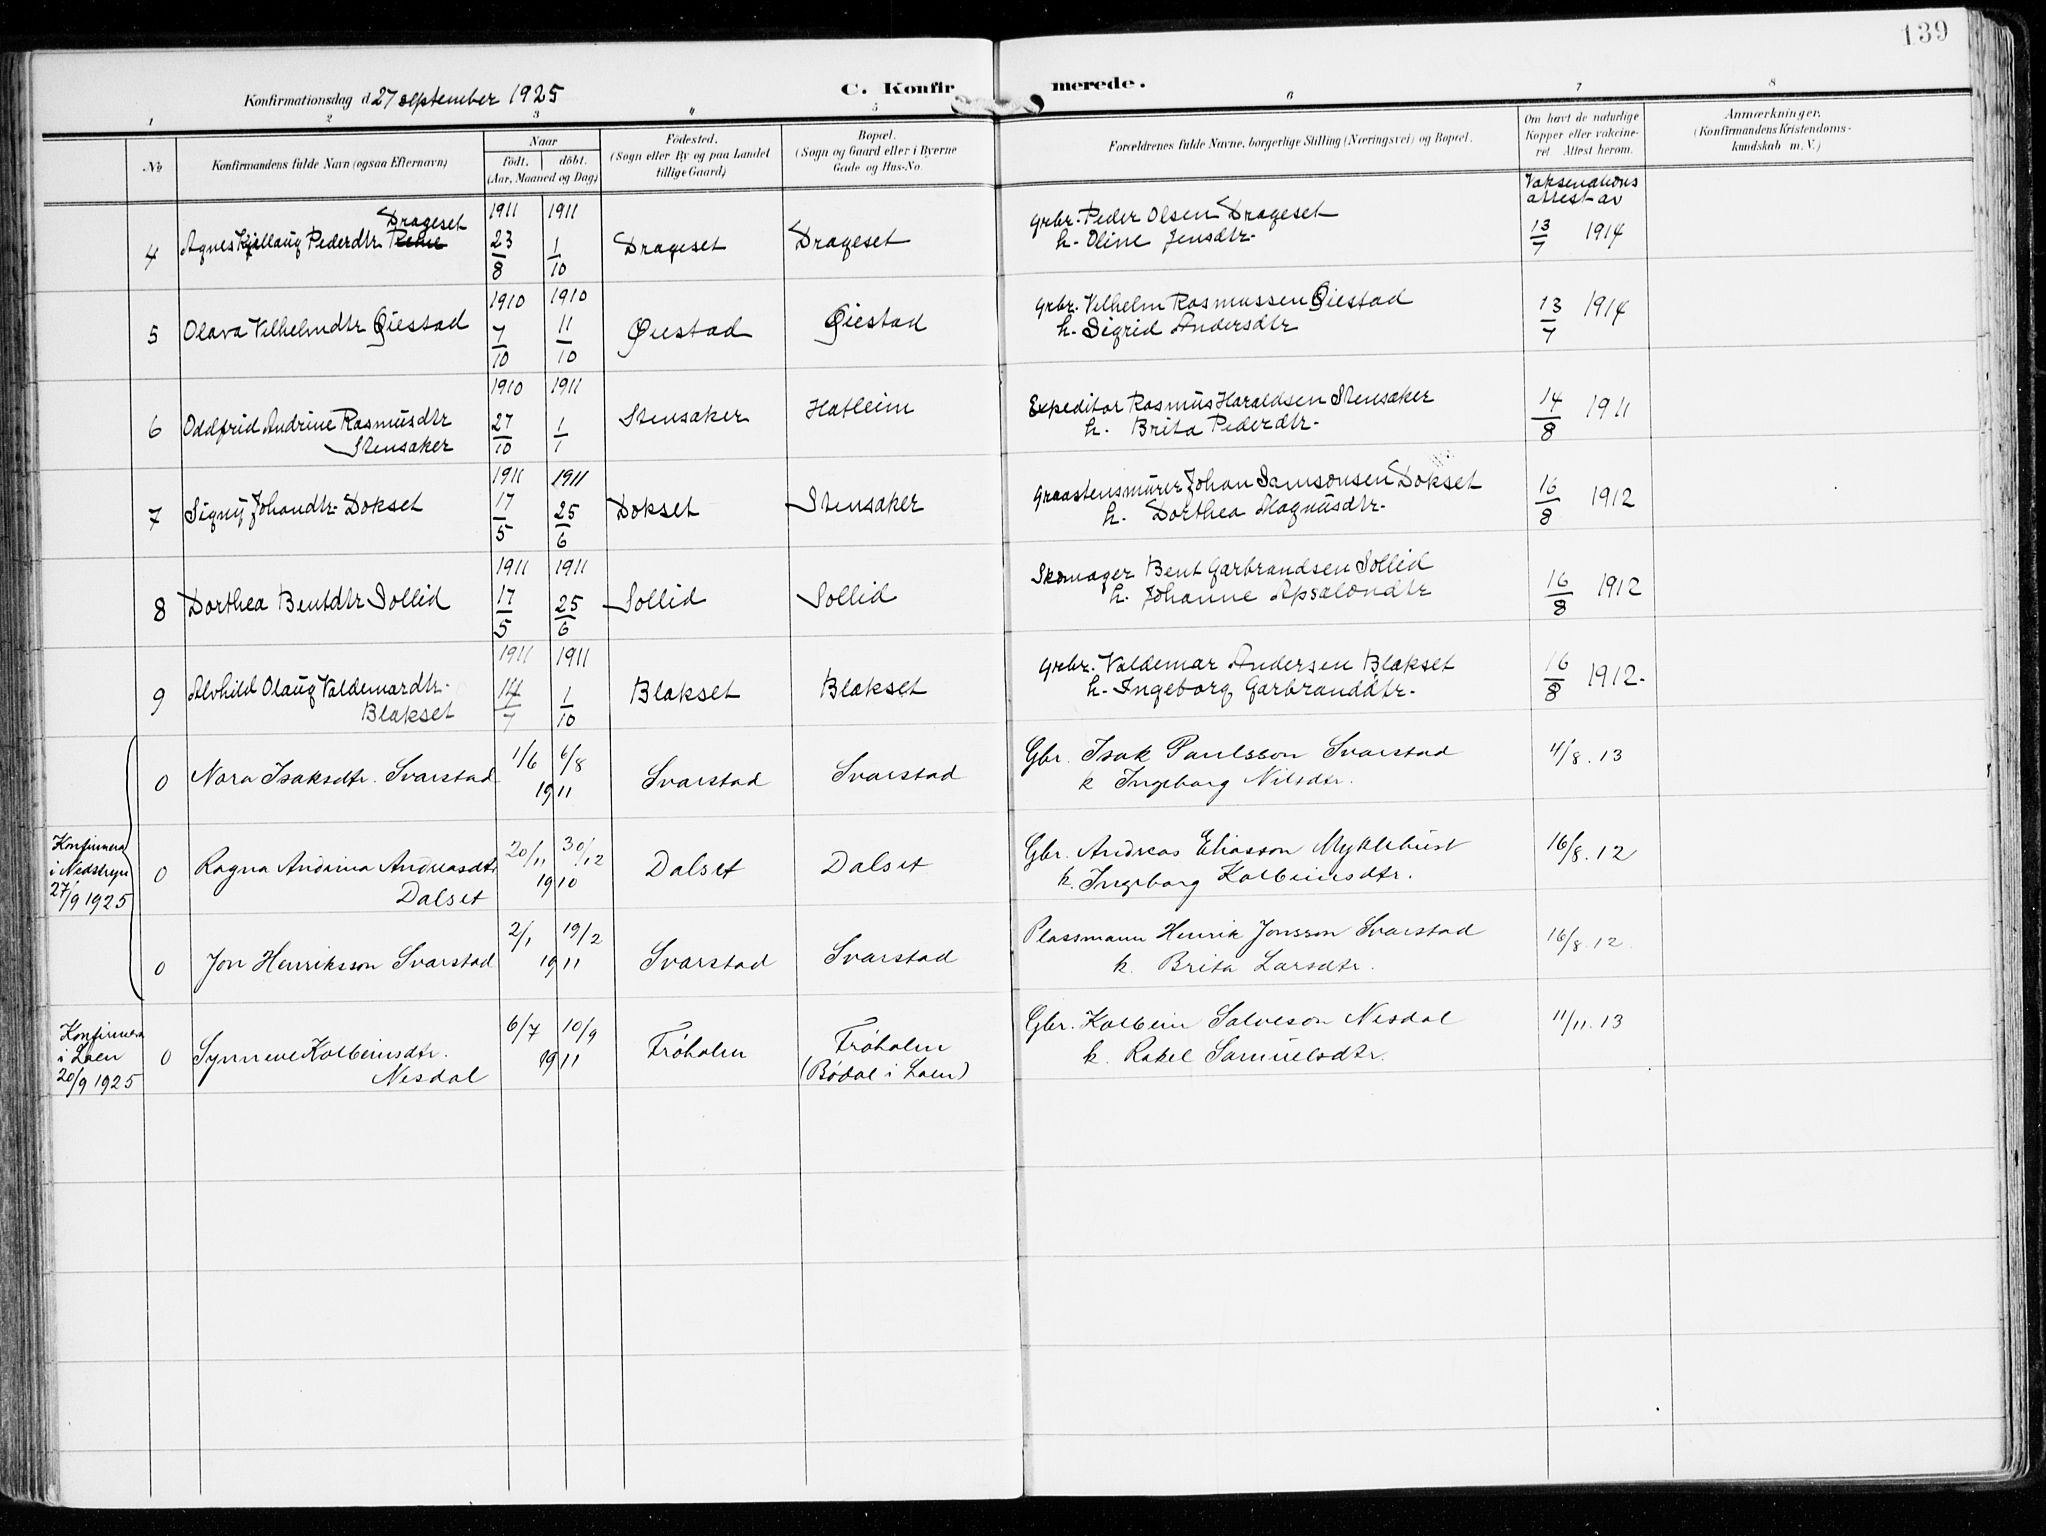 139
Konfirmationsdag d 27 September 1925 C. Konfirmerede.
1 2 3 4 5 6 7 8
No
Konfirmandens fulde Navn (ogsaa Efternavn)
Naar
født. døbt.
(Aar, Maaned og Dag)
Fødested.
(Sogn eller By og paa Landet
tillige Gaard)
Bopæl.
(Sogn og Gaard eller i Byerne
Gade og Hus-No.
Forældrenes fulde Navne, borgerlige Stilling (Næringsvei) og Bopæl.
Om havt de naturlige
Kopper eller vakcine-
ret. Attest herom.
Anmærkninger.
(Konfirmandens Kristendoms-
kundskab m. V.)
Vaksenations
attest av
4 Agnes Kjellaug Pederdtr Drageset 1911 23/8 1911 1/10 Drageset Drageset Grbr. Peder Olsen Drageset
h. Oline Jensdtr. 13/7 1914
5 Olava Vilhelmdtr Øiestad 1910 7/10 1910 11/10 Øiestad Øiestad Grbr. Vilhelm Rasmussen Øiestad
h. Sigrid Andersdtr 13/7 1914
6 Oddfrid Andrine Rasmusdtr
Stensaker 1910 27/10 1911 1/1 Stensaker Hatleim Expeditor Rasmus Haraldsen Stensaker
h. Brita Pederdtr. 14/8 1911
7 Signy Johandtr. Dokset 1911 17/5 1911 25/6 Dokset Stensaker Graastensmurer Johan Samsonsen Dokset
h. Dorthea Magnusdtr. 16/8 1912
8 Dorthea Bentdtr Sollid 1911 17/5 1911 25/6 Sollid Sollid Skomager Bent Garbrandsen Sollid
h. Johanne Apsalondtr 16/8 1912
9 Alvhild Olaug Valdemardtr.
Blakset 1911 14/7 1911 1/10 Blakset Blakset Grbr. Valdemar Andersen Blakset
h. Ingeborg Garbranddtr. 16/8 1912.
0 Nora Isaksdtr. Svarstad 1/6 6/8 1911 Svarstad Svarstad Gbr. Isak Paulsson Svarstad
k Ingeborg Nilsdtr. 4/8.13
Konfirmera
i Nedstryn
27/9 1925
0 Ragna Andrina Andreasdtr
Dalset 20/11 30/12 1910 Dalset Dalset Gbr. Andreas Eliasson Myklebust
k. Ingeborg Kolbeinsdtr. 16/8.12
0 Jon Henriksson Svarstad 2/1 19/2 1911 Svarstad Svarstad Plassmann Henrik Jonsson Svarstad
k. Brita Larsdtr. 16/8.12.
Konfirmera
i Loen
20/9 1925
0 Synneve Kolbeinsdtr.
Nesdal 6/7 10/9 1911 Frøholm Frøholm
(Bødal i Loen) Gbr. Kolbein Salveson Nesdal
k. Rakel Samuelsdtr. 11/11.13